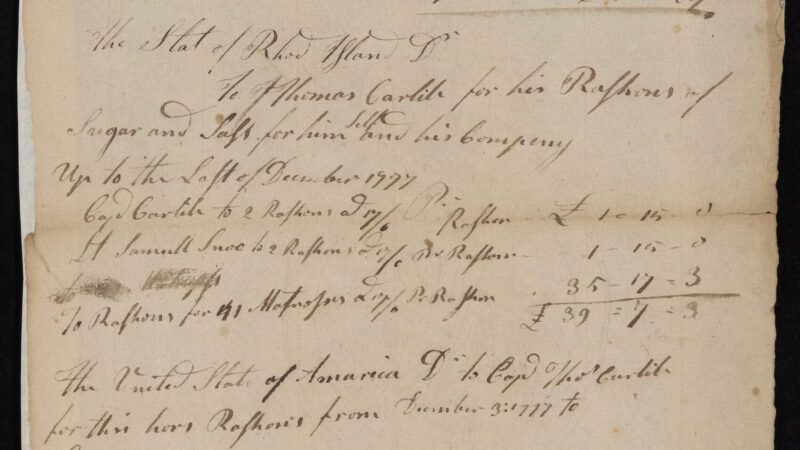 The Stat of Rhod Island Dr
To Thomas Carlile for his Rashons of
Sugar and Salt for him Self and his Compeny
Up to the Last of Decmber 1777
Capt Carlile to 2 Rashons at 17/6 Pr Rashon £ 1 - 15 - 0
Lt Samuell to 2 Rashons at 17/6 Pr Rashon - 1 - 15 - 0
To Rashons for 41 Matrosses at 17/6 Pr Rashon 35 - 17 = 3
£ 39 = 7 = 3
The United State of America Dr to Capt Thos Carlile
for hors Rashons from December 3: 1777 to